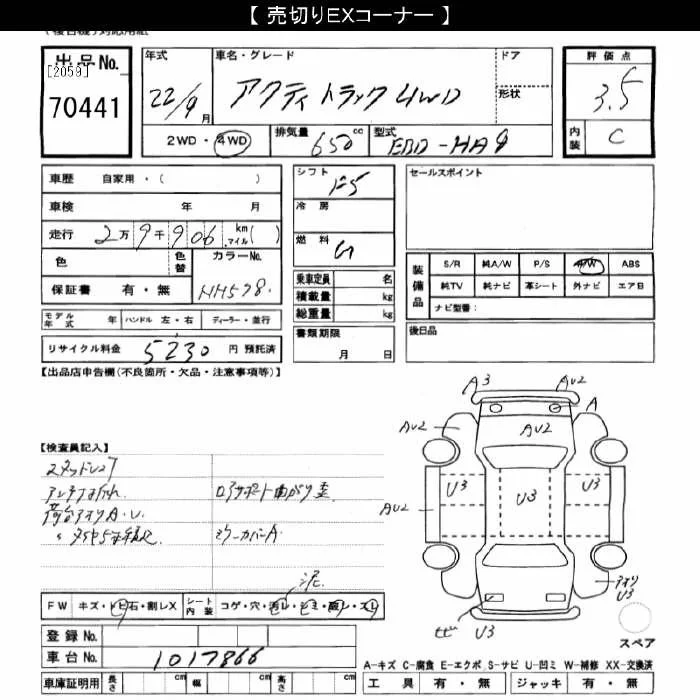 【 売切りEXコーナー 】
出品No.
[2059]
70441
年式
22/9月
車名・グレード
アクティ トラック 4WD
ドア
形状
評価点
3.5
内装
C
2WD・4WD
排気量
650cc
型式
EBD-HA9
車歴 自家用・( )
車検 年 月
走行 2万9千906 km マイル( )
色
色替
カラーNo.
NH578
保証書 有・無
モデル年式 年 ハンドル 左・右 ディーラー・並行
リサイクル料金 5230 円 預託済
シフト
F5
冷房
燃料
G
乗車定員 名
積載量 kg
総重量 kg
書類期限
月 日
セールスポイント
装備品
S/R 純A/W P/S P/W ABS
純TV 純ナビ 革シート 外ナビ エアB
ナビ型番:
後日品
【出品店申告欄(不良箇所・欠品・注意事項等)】
【検査員記入】
アンテナ折れ
ロアサポート曲がり歪
荷台アオリA・U
ミラーカバーA
泥
A3
AU2
A
AU2
AU2
U3
U3
U3
AU2
アオリ
U3
U3
FW キズ・トビ石・割レX シート内装 コゲ・穴・汚レ・シミ・破レ・スレ
登録No.
車台No. 1017866
車庫証明用 長さ cm 幅 cm 高さ cm
スペア
A-キズ C-腐食 E-エクボ S-サビ U-凹ミ W-補修 XX-交換済
工具 有・無 ジャッキ 有・無